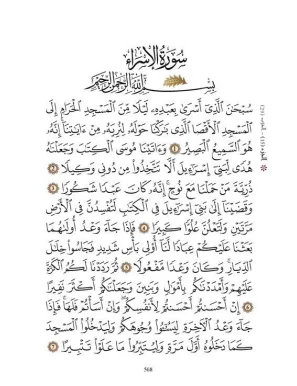 سُورَةُ الإِسْرَاءِ
بِسْمِ اللَّهِ الرَّحْمَٰنِ الرَّحِيمِ
سُبْحَٰنَ ٱلَّذِىٓ أَسْرَىٰ بِعَبْدِهِۦ لَيْلًا مِّنَ ٱلْمَسْجِدِ ٱلْحَرَامِ إِلَى
ٱلْمَسْجِدِ ٱلْأَقْصَا ٱلَّذِى بَٰرَكْنَا حَوْلَهُۥ لِنُرِيَهُۥ مِنْ ءَايَٰتِنَآ إِنَّهُۥ
هُوَ ٱلسَّمِيعُ ٱلْبَصِيرُ ۝١ وَءَاتَيْنَا مُوسَى ٱلْكِتَٰبَ وَجَعَلْنَٰهُ
هُدًى لِّبَنِىٓ إِسْرَٰٓءِيلَ أَلَّا تَتَّخِذُوا۟ مِن دُونِى وَكِيلًا ۝٢
ذُرِّيَّةَ مَنْ حَمَلْنَا مَعَ نُوحٍ إِنَّهُۥ كَانَ عَبْدًا شَكُورًا ۝٣
وَقَضَيْنَآ إِلَىٰ بَنِىٓ إِسْرَٰٓءِيلَ فِى ٱلْكِتَٰبِ لَتُفْسِدُنَّ فِى ٱلْأَرْضِ
مَرَّتَيْنِ وَلَتَعْلُنَّ عُلُوًّا كَبِيرًا ۝٤ فَإِذَا جَآءَ وَعْدُ أُولَىٰهُمَا
بَعَثْنَا عَلَيْكُمْ عِبَادًا لَّنَآ أُو۟لِى بَأْسٍ شَدِيدٍ فَجَاسُوا۟ خِلَٰلَ
ٱلدِّيَارِ وَكَانَ وَعْدًا مَّفْعُولًا ۝٥ ثُمَّ رَدَدْنَا لَكُمُ ٱلْكَرَّةَ
عَلَيْهِمْ وَأَمْدَدْنَٰكُم بِأَمْوَٰلٍ وَبَنِينَ وَجَعَلْنَٰكُمْ أَكْثَرَ نَفِيرًا
۝٦ إِنْ أَحْسَنتُمْ أَحْسَنتُمْ لِأَنفُسِكُمْ وَإِنْ أَسَأْتُمْ فَلَهَا فَإِذَا
جَآءَ وَعْدُ ٱلْءَاخِرَةِ لِيَسُۥٓـُٔوا۟ وُجُوهَكُمْ وَلِيَدْخُلُوا۟ ٱلْمَسْجِدَ
كَمَا دَخَلُوهُ أَوَّلَ مَرَّةٍ وَلِيُتَبِّرُوا۟ مَا عَلَوْا۟ تَتْبِيرًا ۝٧
568